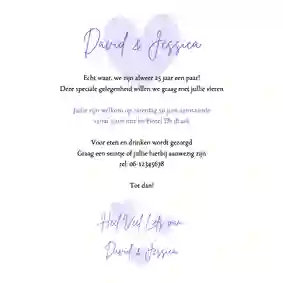 David & Jessica
Echt waar, we zijn alweer 25 jaar een paar!
Deze speciale gelegenheid willen we graag met jullie vieren
Jullie zijn welkom op zaterdag 30 juni aanstaande
vanaf 15:00 uur in Hotel De Draak
Voor eten en drinken wordt gezorgd
Graag een seintje of jullie hierbij aanwezig zijn
tel: 06-12345678
Tot dan!
Heel Veel Liefs van
David & Jessica